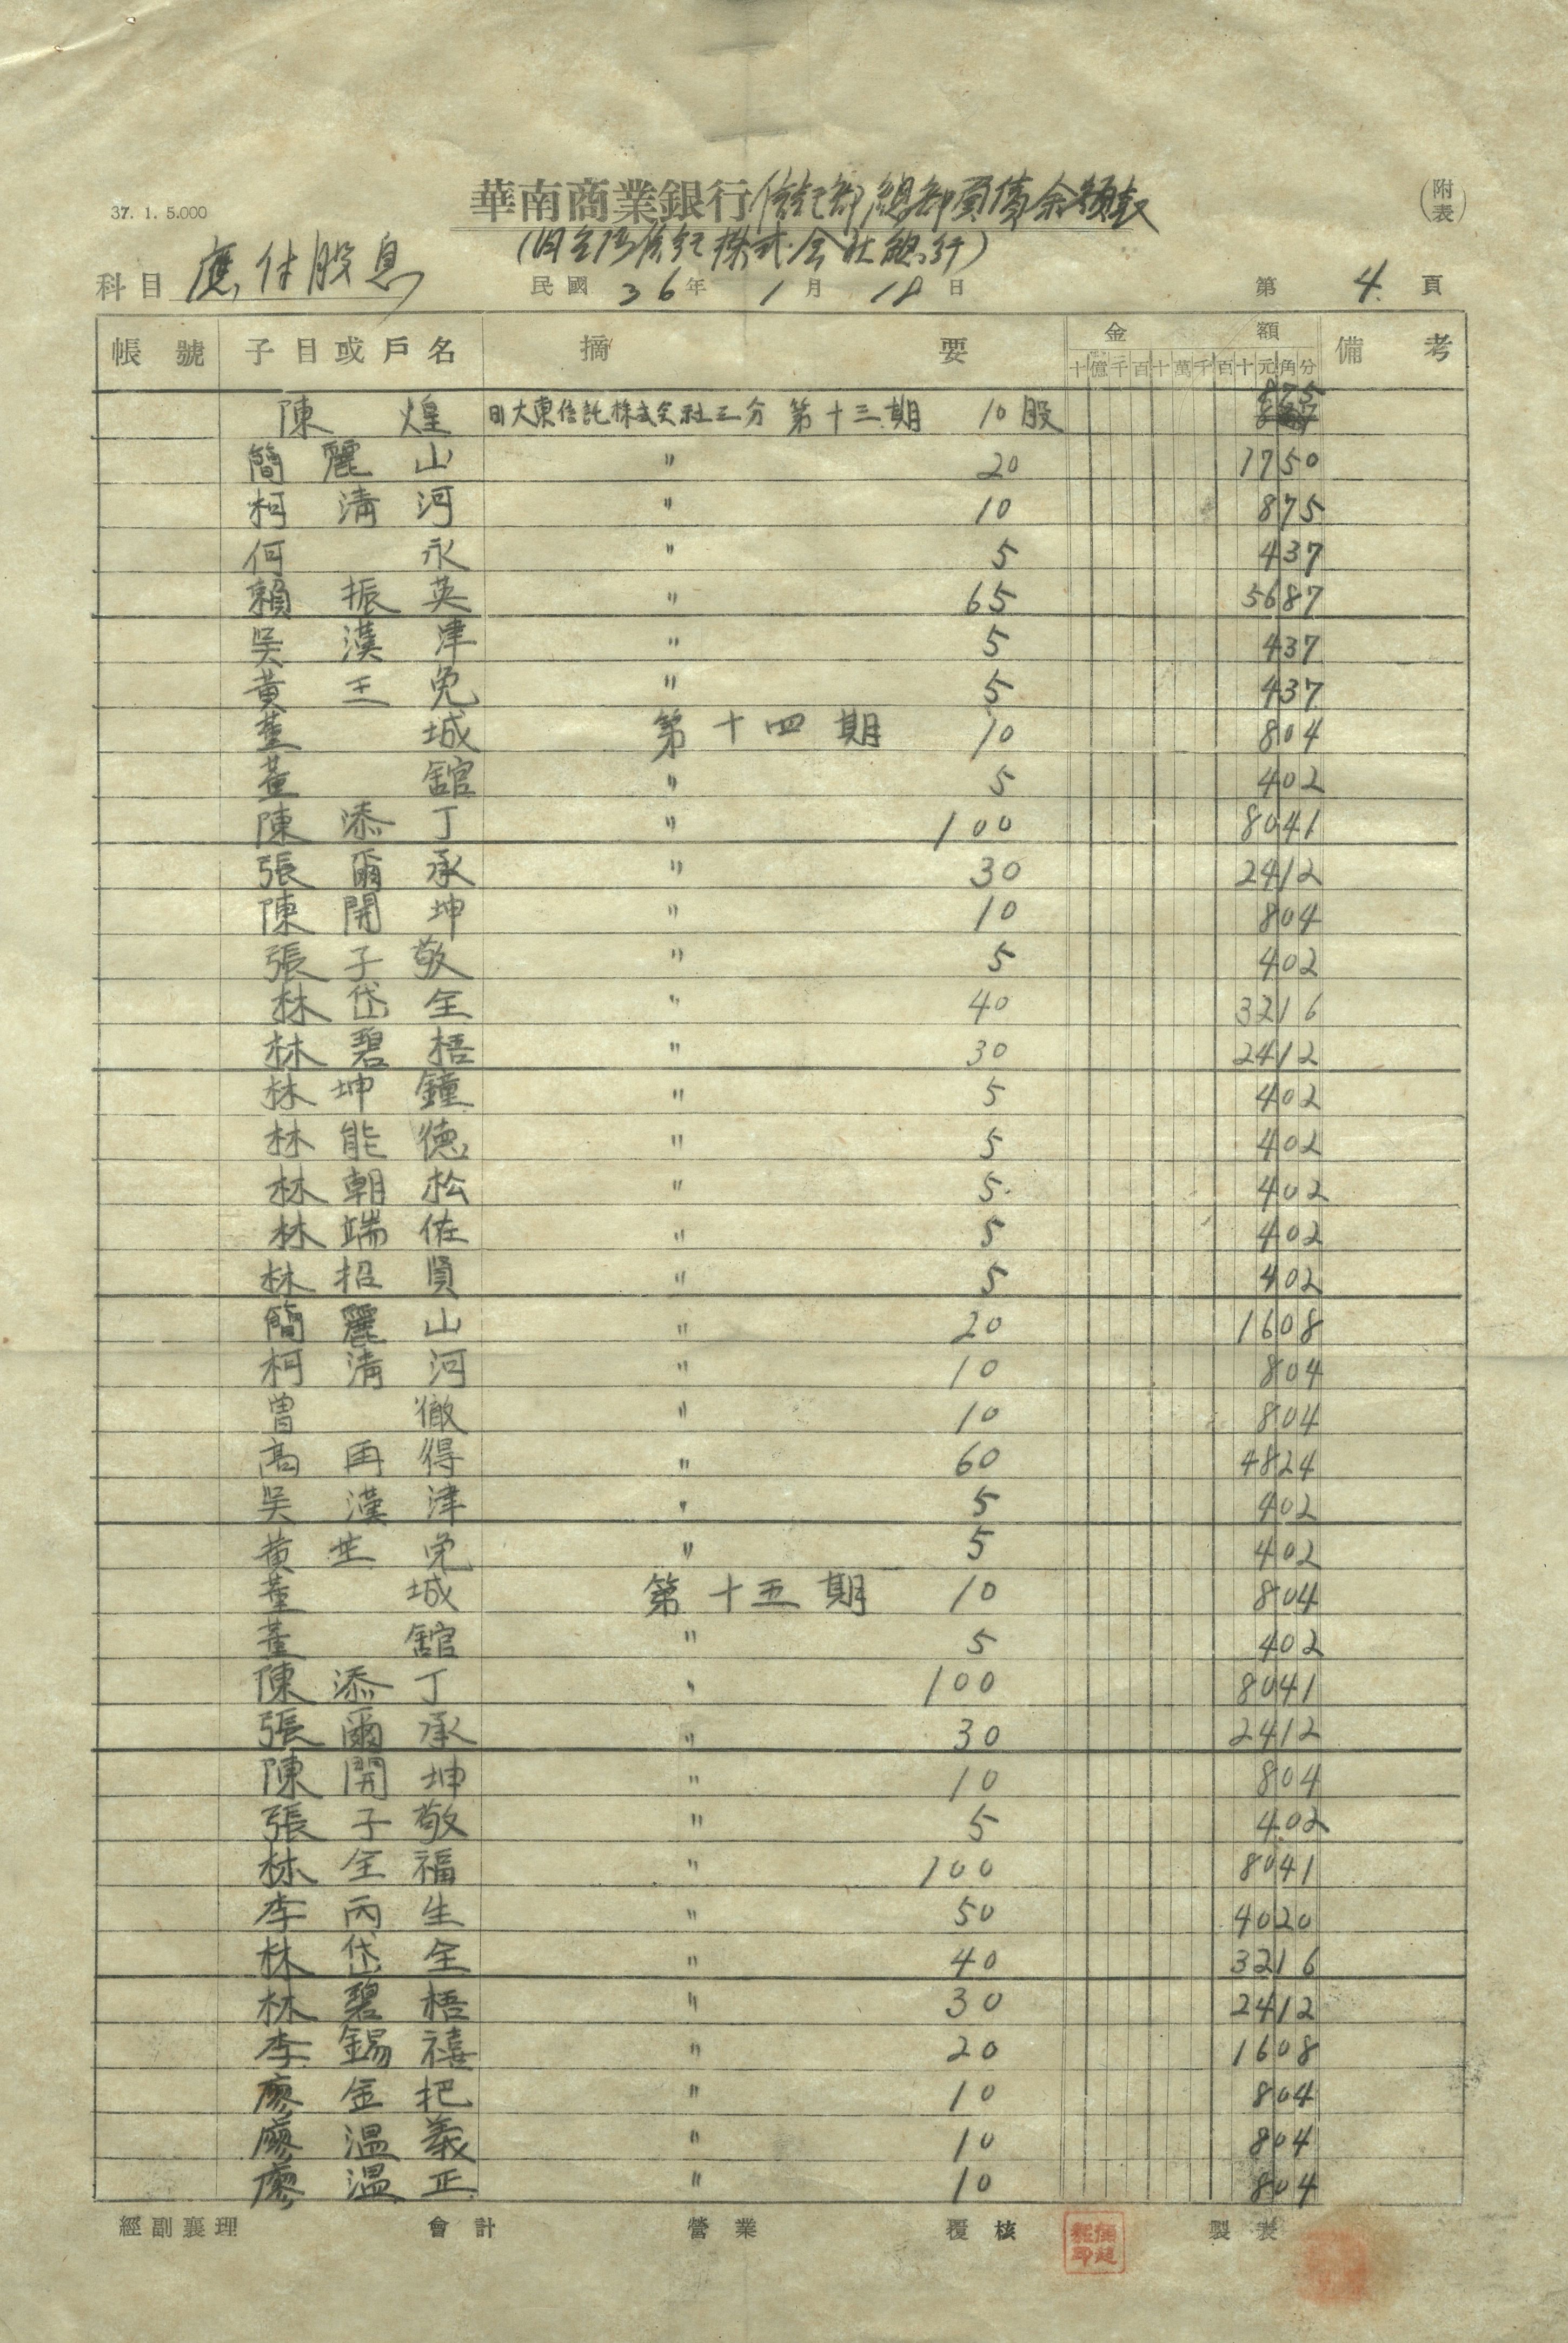 37. 1. 5.000
華南商業銀行信託部總部負債余額表
(附表)
(旧台湾信託株式会社總行)
科目 應付股息 民國 36年 1月 18日 第 4 頁
帳號 子目或戶名 摘要 金額 備考
十億千百十萬千百十元角分
陳煌 旧大東信託株式会社三分 第十三期 10股 875
簡麗山 〃 20 1750
柯清河 〃 10 875
何永 〃 5 437
賴振英 〃 65 5687
吳漢津 〃 5 437
黃王兔 〃 5 437
董城 第十四期 10 804
董舘 〃 5 402
陳添丁 〃 100 8041
張爾承 〃 30 2412
陳開坤 〃 10 804
張子敬 〃 5 402
林岱全 〃 40 3216
林碧梧 〃 30 2412
林坤鐘 〃 5 402
林能德 〃 5 402
林朝松 〃 5 402
林端佐 〃 5 402
林招賢 〃 5 402
簡麗山 〃 20 1608
柯清河 〃 10 804
曾徹 〃 10 804
高再得 〃 60 4824
吳漢津 〃 5 402
黃兔 〃 5 402
董城 第十五期 10 804
董舘 〃 5 402
陳添丁 〃 100 8041
張爾承 〃 30 2412
陳開坤 〃 10 804
張子敬 〃 5 402
林全福 〃 100 8041
李丙生 〃 50 4020
林岱全 〃 40 3216
林碧梧 〃 30 2412
李錫禧 〃 20 1608
廖金把 〃 10 804
廖溫義 〃 10 804
廖溫正 〃 10 804
經副襄理 會計 營業 覆核 製表